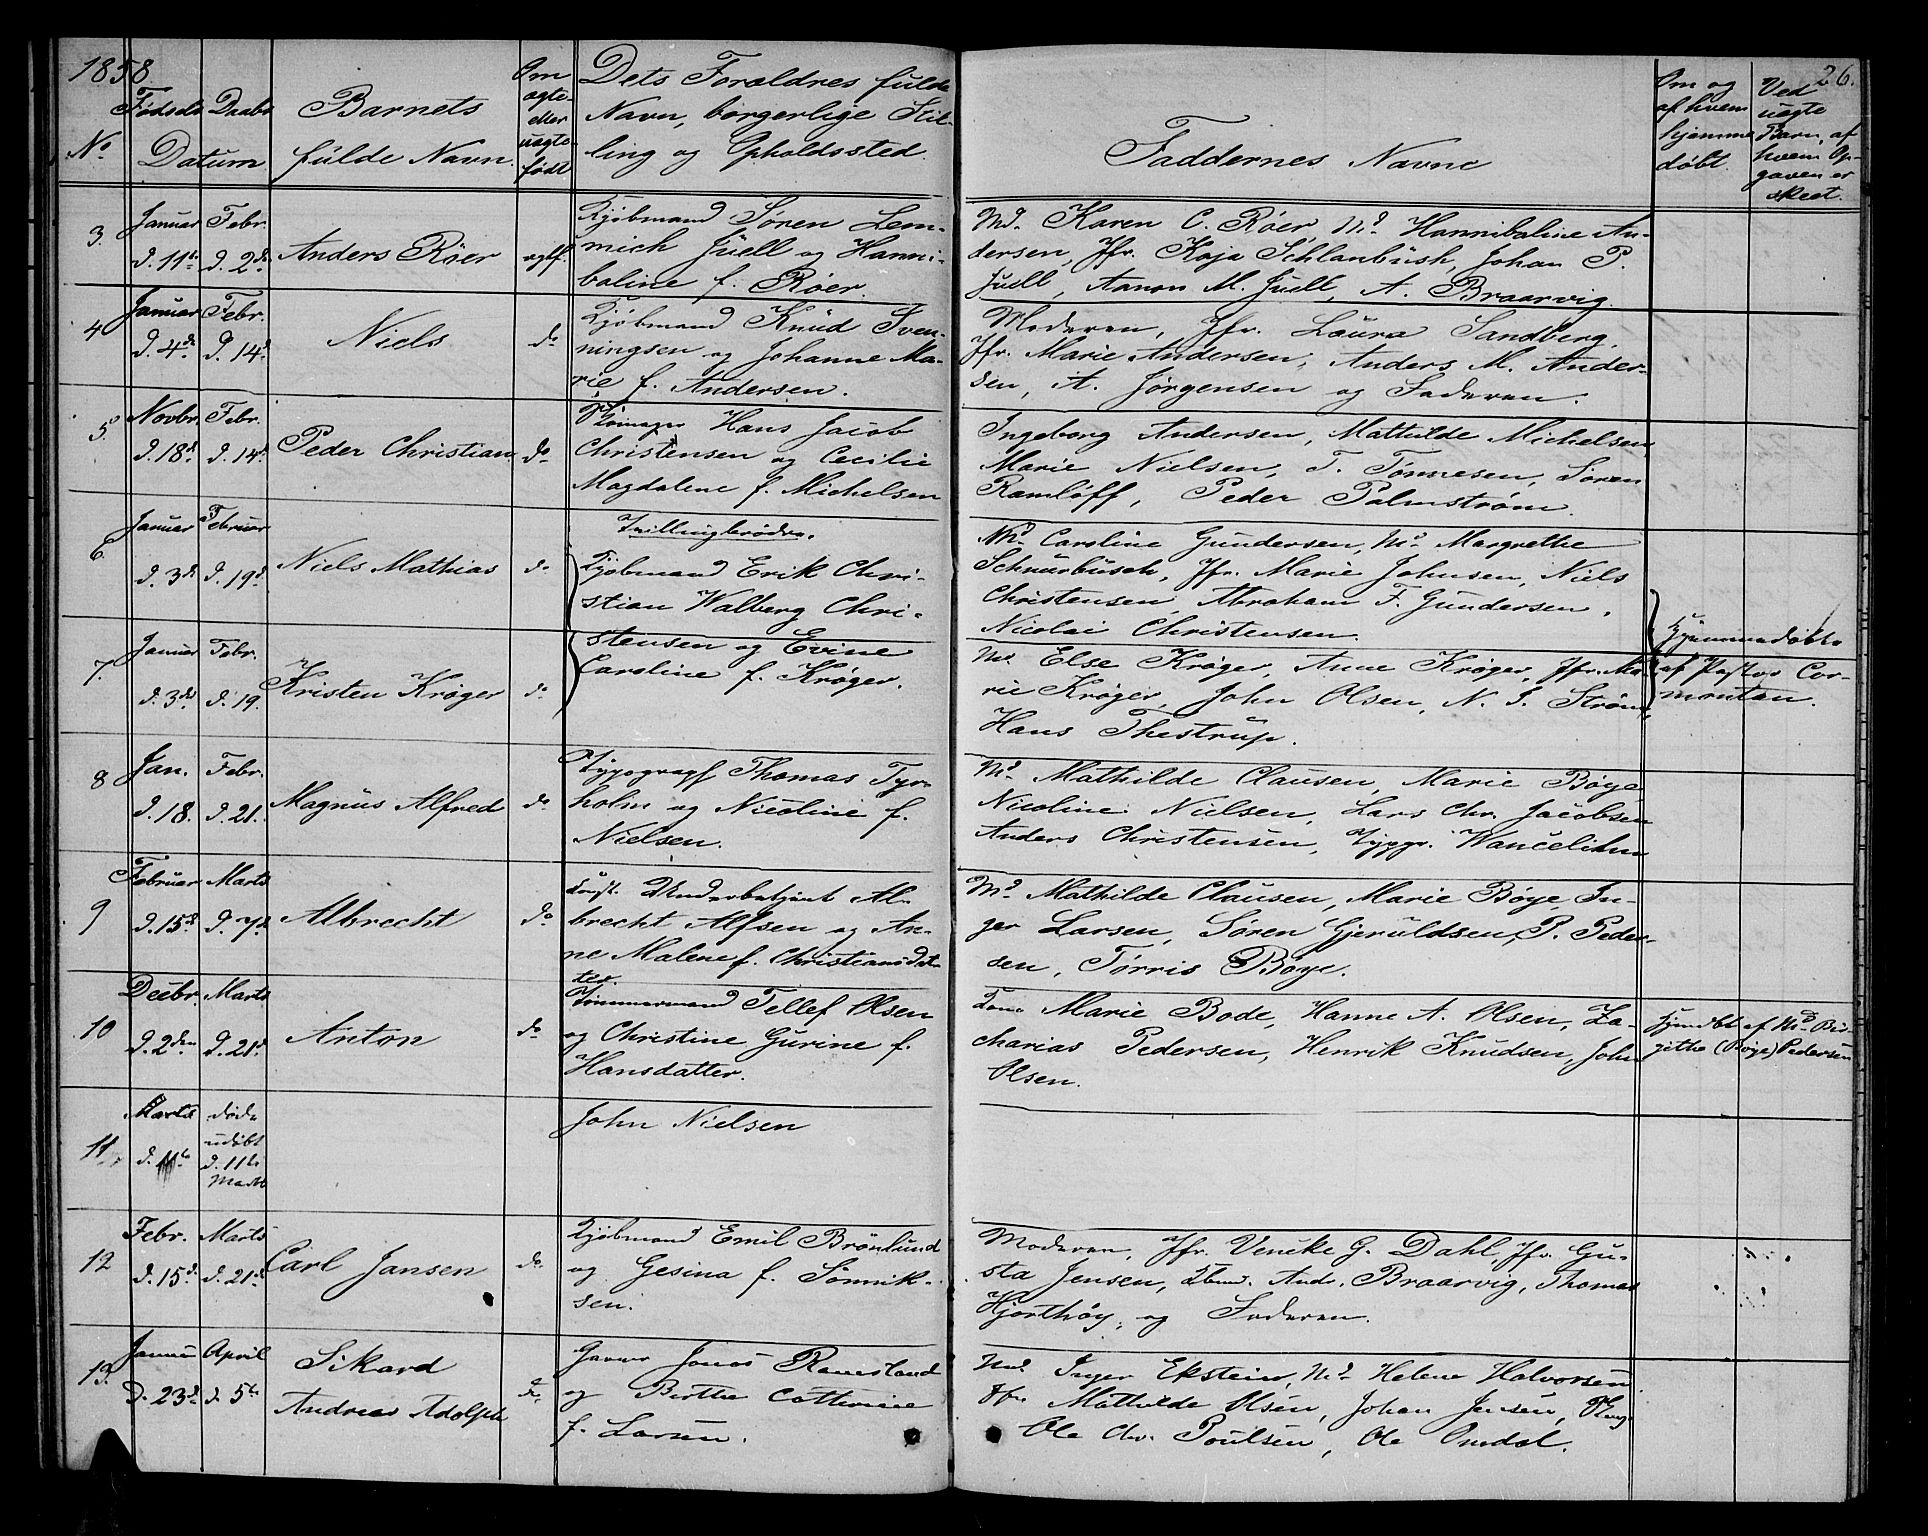 1858.
26.
No
Fødsels Daabs
Datum
Barnets
fulde Navn
Om
ægte
eller
uægte
født
Dets Forældres fulde
Navn, borgerlige Stil-
ling og Opholdssted.
Faddernes Navne
Om og
af hvem
hjemme
døbt.
Ved
uægte
Barn, af
hvem Op-
gaven er
skeet.
3.
Januar Febr.
d. 11te d. 2den
Anders Röer
ægtf.
Kjøbmand Søren Lem-
mich Juell og Hanni-
baline f. Röer.
Md. Karen C. Röer, Md. Hannibaline An-
dersen, Jfr. Kaja Schlanbusk, Johan P.
Juell, Aanon M. Juell, A. Braarvig.
4
Januar Febr.
d. 4de d. 14d
Niels
do
Kjøbmand Knud Sven-
ningsen og Johanne Ma-
rie f. Andersen.
Moderen, Jfr. Laura Sandberg,
Jfr. Marie Andersen, Anders M. Ander-
sen, A. Jørgensen og Faderen.
5
Novbr. Febr.
d. 18d d. 14d
Peder Christian
do
Hans Jacob
Christensen og Cecilie
Magdalene f. Michelsen
Ingeborg Andersen, Mathilde Michelsen,
Marie Nielsen, T. Tønnesen, Søren
Ramlöff, Peder Palmstrøm.
6.
Januar Februar
d. 3de d. 19d
Niels Mathias
do
Tvillingbrødre.
Kjøbmand Erik Chri-
stian Walberg Chri-
stensen og Evine
Caroline f. Krøger.
Md. Caroline Gundersen, Md. Margrethe
Schnurbusch, Jfr. Marie Johnsen, Niels
Christensen, Abraham F. Gundersen,
Nicolai Christensen.
Hjemmedøbte
af Pastor Cor-
montan.
7.
Januar Febr.
d. 3die d. 19.
Kristen Krøger
do
Md. Else Krøger, Anne Krøger, Jfr. Ma-
rie Krøger, John Olsen, N. S. Strøm,
Hans Thestrup.
8
Jan. Febr.
d. 18. d. 21.
Magnus Alfred
do
Typograph Thomas Tyr-
holm og Nicoline f.
Nielsen.
Md. Mathilde Clausen, Marie Bøye
Nicoline Nielsen, Lars Chr. Jacobsen
Anders Christensen, Typgr.
9
Februar Marts
d. 15d d. 7d
Albrecht
do
Const. Underbetjent Al-
brecht Alfsen og An-
ne Malene f. Christiansdat-
ter.
Md. Mathilde Clausen, Marie Bøye, In-
ger Larsen, Søren Gjeruldsen, P. Peder-
sen, Tørris Bøye.
10
Decbr. Marts
d. 2den d. 21d
Anton
do
Tømmermand Tellef Olsen
og Christine Gurine f.
Hansdatter.
Kone Marie Bode, Hanne A. Olsen, Za-
charias Pedersen, Henrik Knudsen, John
Olsen.
Hjmdbt af Md. Bir-
githe (Bøye) Pedersen
11
Marts
d. 11te
døde
udøbt
d. 11te
Marts
John Nielsen
12
Febr. Marts
d. 15d d. 21d
Carl Jansen
do
Kjøbmand Emil Brönlund
og Gesina f. Sönnik-
sen.
Moderen, Jfr. Vencke G. Dahl, Jfr. Gu-
sta Jensen, Kbmd. Andr. Braarvig, Thomas
Hjorthöy, og Faderen.
13.
Januar April
d. 23d d. 5te
Sikard
Andreas Adolph
do
Garver Jonas Ramsland
og Berthe Cathrine
f. Larsen.
Md. Inger Ekstein, Md. Helene Halvorsen
Jfr. Mathilde Olsen, Johan Jensen,
Ole Chr. Poulsen, Ole Omdal.